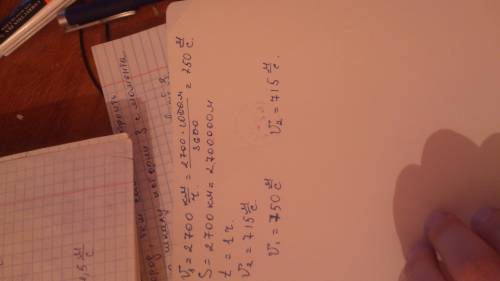 v₁ = 2700 км/ч = 2700·1000м/3600 = 750 м/с.
S = 2700 км = 2700000 м
t = 1 ч.
v₂ = 715 м/с
v₁ = 750 м/с v₂ = 715 м/с.
4,5 м/с